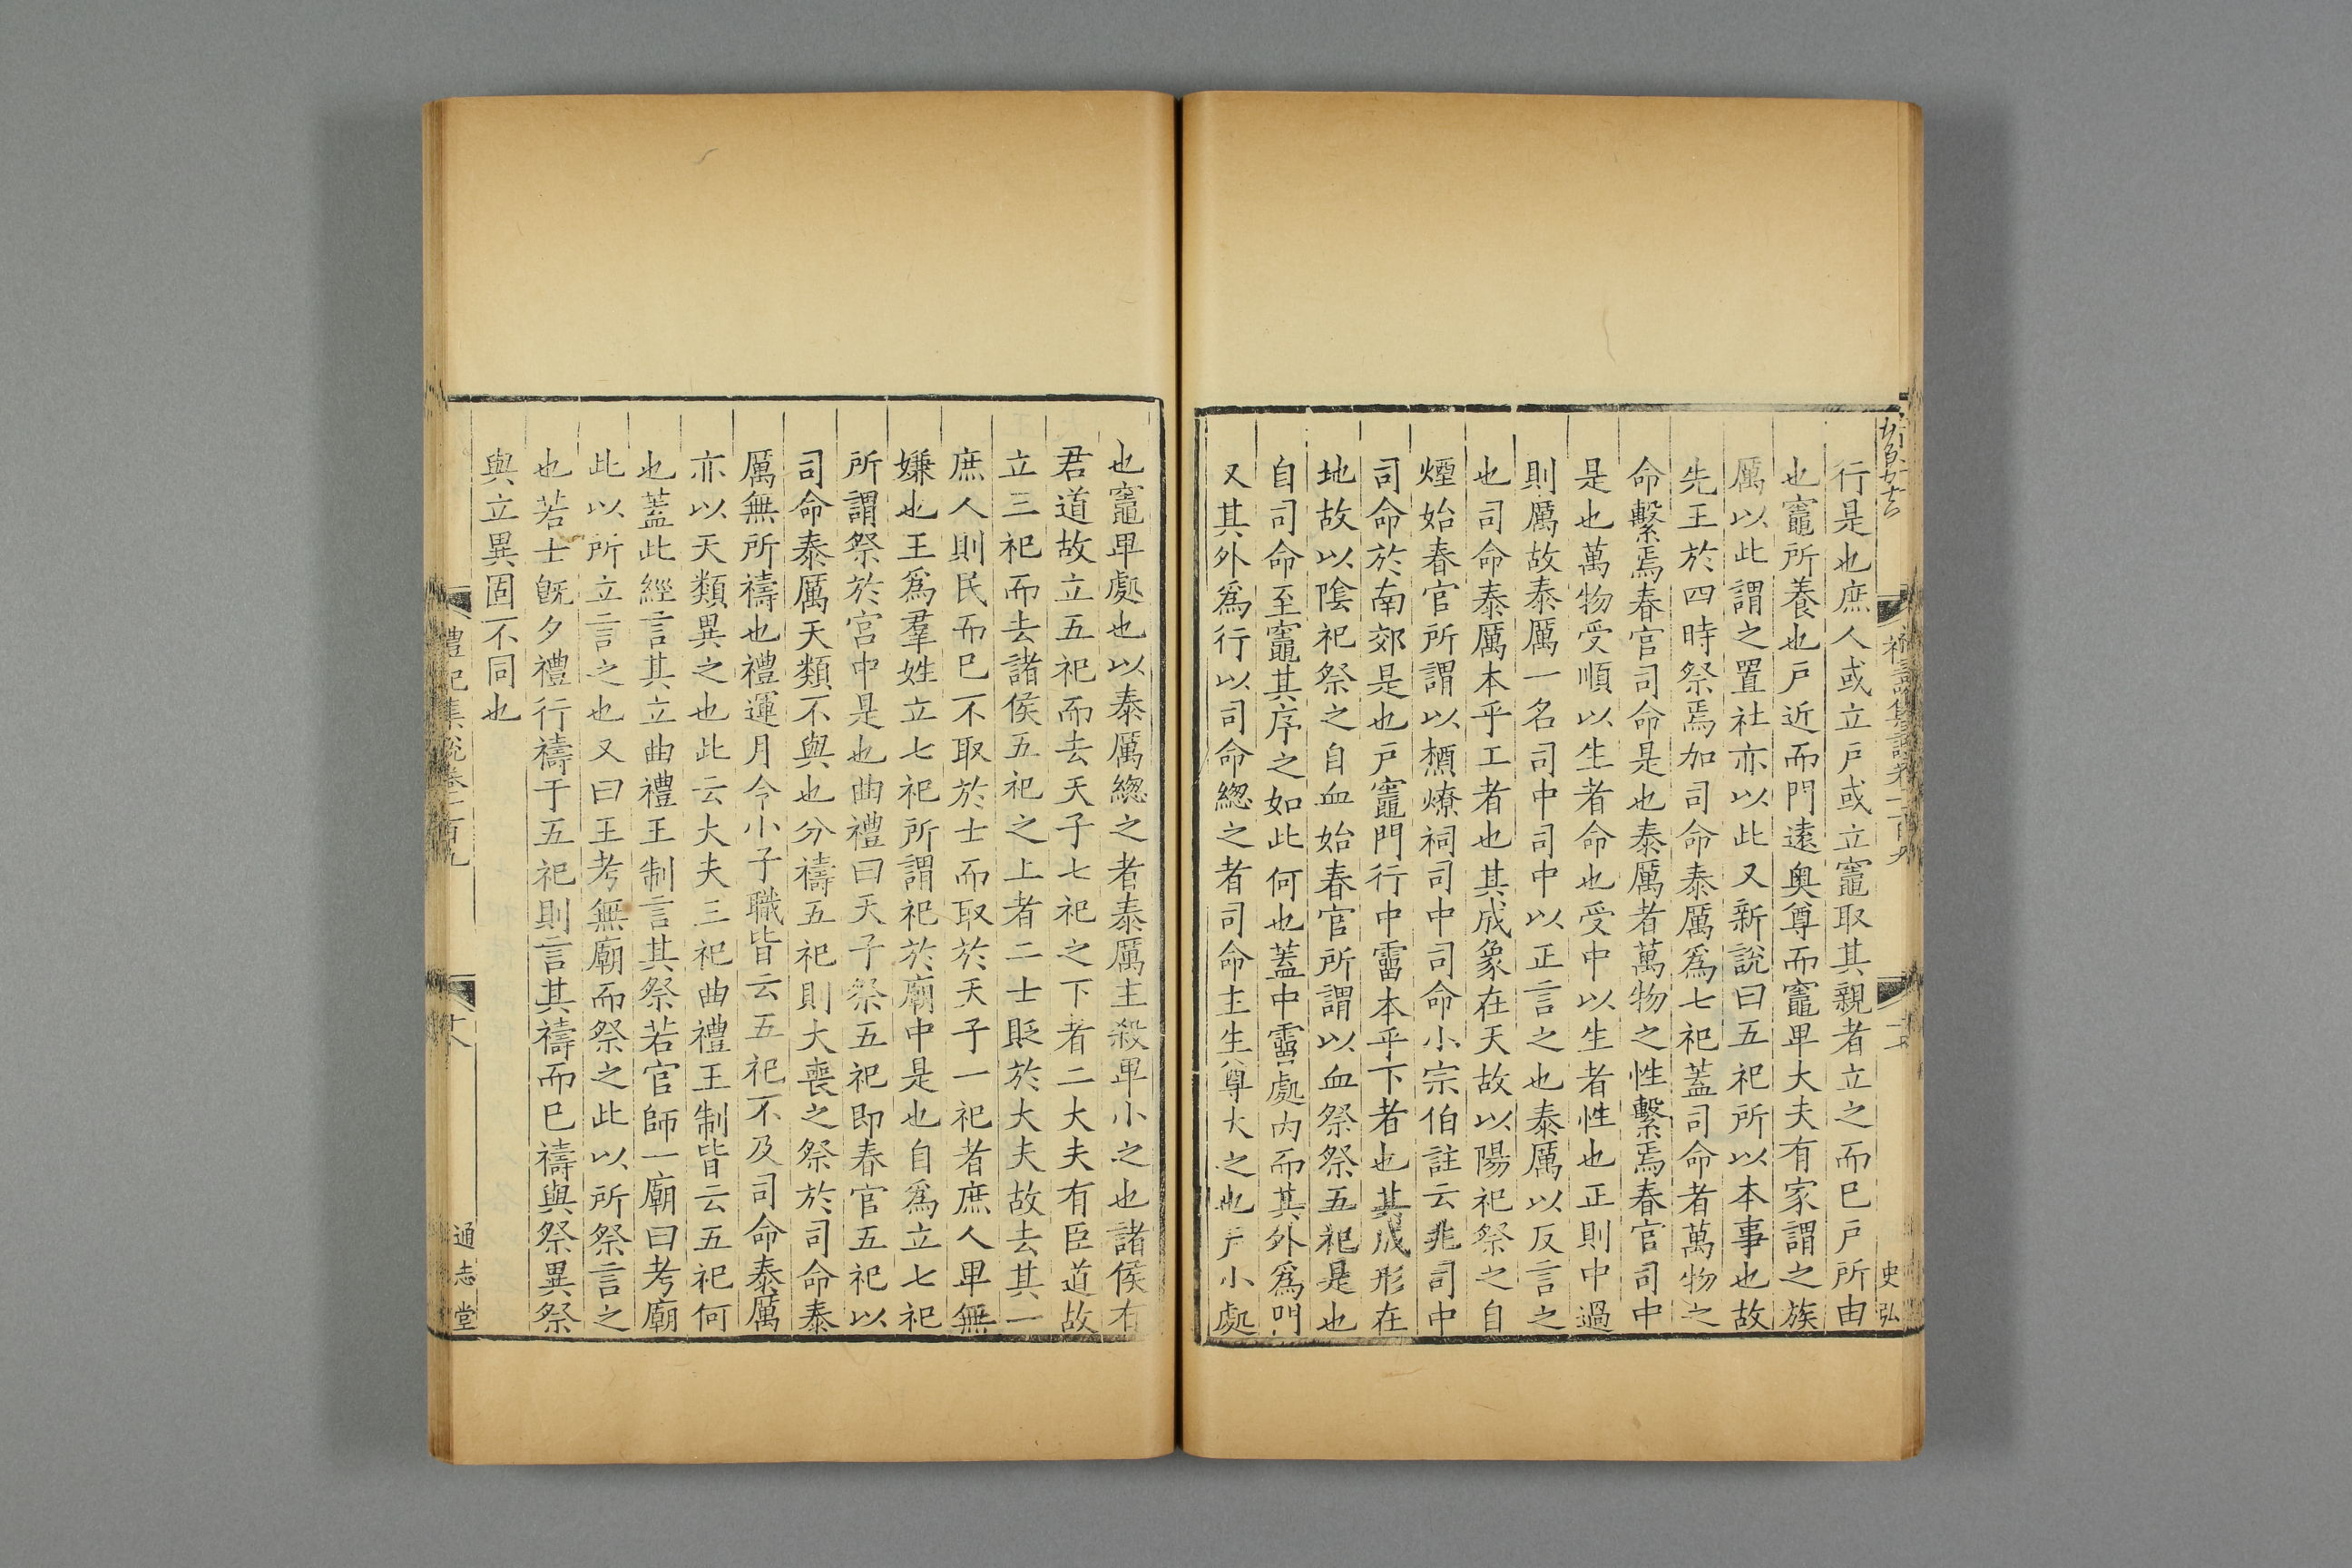 行是也庶人或立戶或立竈取其親者立之而已戶所由
也竈所養也戶近而門遠奧尊而竈卑大夫有家謂之族
厲以此謂之置社亦以此又新說曰五祀所以本事也故
先王於四時祭焉加司命泰厲爲七祀蓋司命者萬物之
命繫焉春官司命是也泰厲者萬物之性繫焉春官司中
是也萬物受順以生者命也受中以生者性也正則中過
則厲故泰厲一名司中司中以正言之也泰厲以反言之
也司命泰厲本乎工者也其成象在天故以陽祀祭之自
煙始春官所謂以槱燎祠司中司命小宗伯註云兆司中
司命於南郊是也戶竈門行中霤本乎下者也其成形在
地故以陰祀祭之自血始春官所謂以血祭祭五祀是也
自司命至竈其序之如此何也蓋中霤處內而其外爲門
又其外爲行以司命緫之者司命主生尊大之也戶小處
也竈卑處也以泰厲緫之者泰厲主殺卑小之也諸侯有
君道故立五祀而去天子七祀之下者二大夫有臣道故
立三祀而去諸侯五祀之上者二士貶於大夫故去其一
庶人則民而已不取於士而取於天子一祀者庶人卑無
嫌也王爲羣姓立七祀所謂祀於廟中是也自爲立七祀
所謂祭於宮中是也曲禮曰天子祭五祀即春官五祀以
司命泰厲天類不與也分禱五祀則大喪之祭於司命泰
厲無所禱也禮運月令小子職皆云五祀不及司命泰厲
亦以天類異之也此云大夫三祀曲禮王制皆云五祀何
也蓋此經言其立曲禮王制言其祭若官師一廟曰考廟
此以所立言之也又曰王考無廟而祭之此以所祭言之
也若士旣夕禮行禱于五祀則言其禱而已禱與祭異祭
與立異固不同也
禮記集說卷一百九
十八
通志堂
史弘